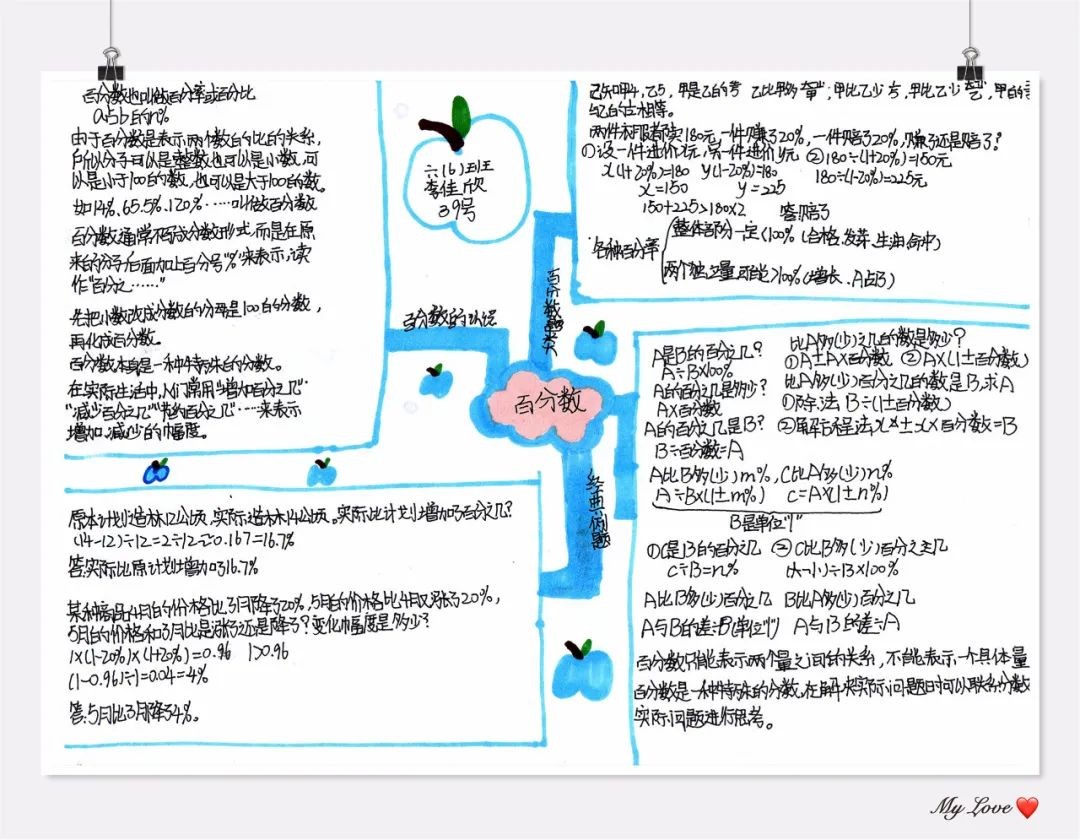 百分数也叫做百分率或百分比
a与b的n%
由于百分数是表示两个数的比的关系,
所以分子可以是整数也可以是小数,可
以是小于100的数,也可以是大于100的数。
如14%、65.5%、120%……叫做百分数
百分数通常不写成分数形式,而是在原
来的分子后面加上百分号"%"来表示,读
作"百分之……"
先把小数改成分数的分母是100的分数,
再化成百分数。
百分数本身是一种特殊的分数。
在实际生活中,人们常用"增加百分之几"
"减少百分之几""节约百分之几"……来表示
增加、减少的幅度。
六(6)班
李佳欣
39号
百分数的认识
百分数
经典例题
乙比甲多
甲比乙少
两件衣服都卖180元,一件赚了20%,一件赔了20%,赚了还是赔了?
①设一件进价x元,另一件进价y元 ②180÷(1+20%)=150元
x(1+20%)=180 y(1-20%)=180 180÷(1-20%)=225元
x=150 y=225
150+225>180×2 答:赔了
各种百分率
整体部分一定<100% (合格、发芽、生、命中)
两个独立量可能>100% (增长、A占B)
A是B的百分之几?
A÷B×100%
A的百分之几是多少?
A×百分数
A的百分之几是B?
B÷百分数=A
比A多(少)之几的数是多少?
①A±A×百分数 ②A×(1±百分数)
比A多(少)百分之几的数是B,求A
①除法 B÷(1±百分数)
②解方程法x±x×百分数=B
A比B多(少)m%,C比A多(少)n%
A÷B×(1±m%) C=A×(1±n%)
B是单位"1"
①C是B的百分之几 ②C比B多(少)百分之几
C÷B=n% (大-小)÷B×100%
A比B多(少)百分之几 B比A多(少)百分之几
A与B的差÷B(单位"1") A与B的差÷A
百分数只能表示两个量之间的关系,不能表示一个具体量
百分数是一种特殊的分数,在解决实际问题时可以联系分数
实际问题进行思考。
原本计划造林12公顷,实际造林14公顷。实际比计划增加了百分之几?
(14-12)÷12=2÷12≈0.167=16.7%
答:实际比原计划增加了16.7%
某种商品4月的价格比3月降了20%,5月的价格比4月又涨了20%,
5月的价格和3月比是涨了还是降了?变化幅度是多少?
1×(1-20%)×(1+20%)=0.96 1>0.96
(1-0.96)÷1=0.04=4%
答:5月比3月降了4%。
My Love